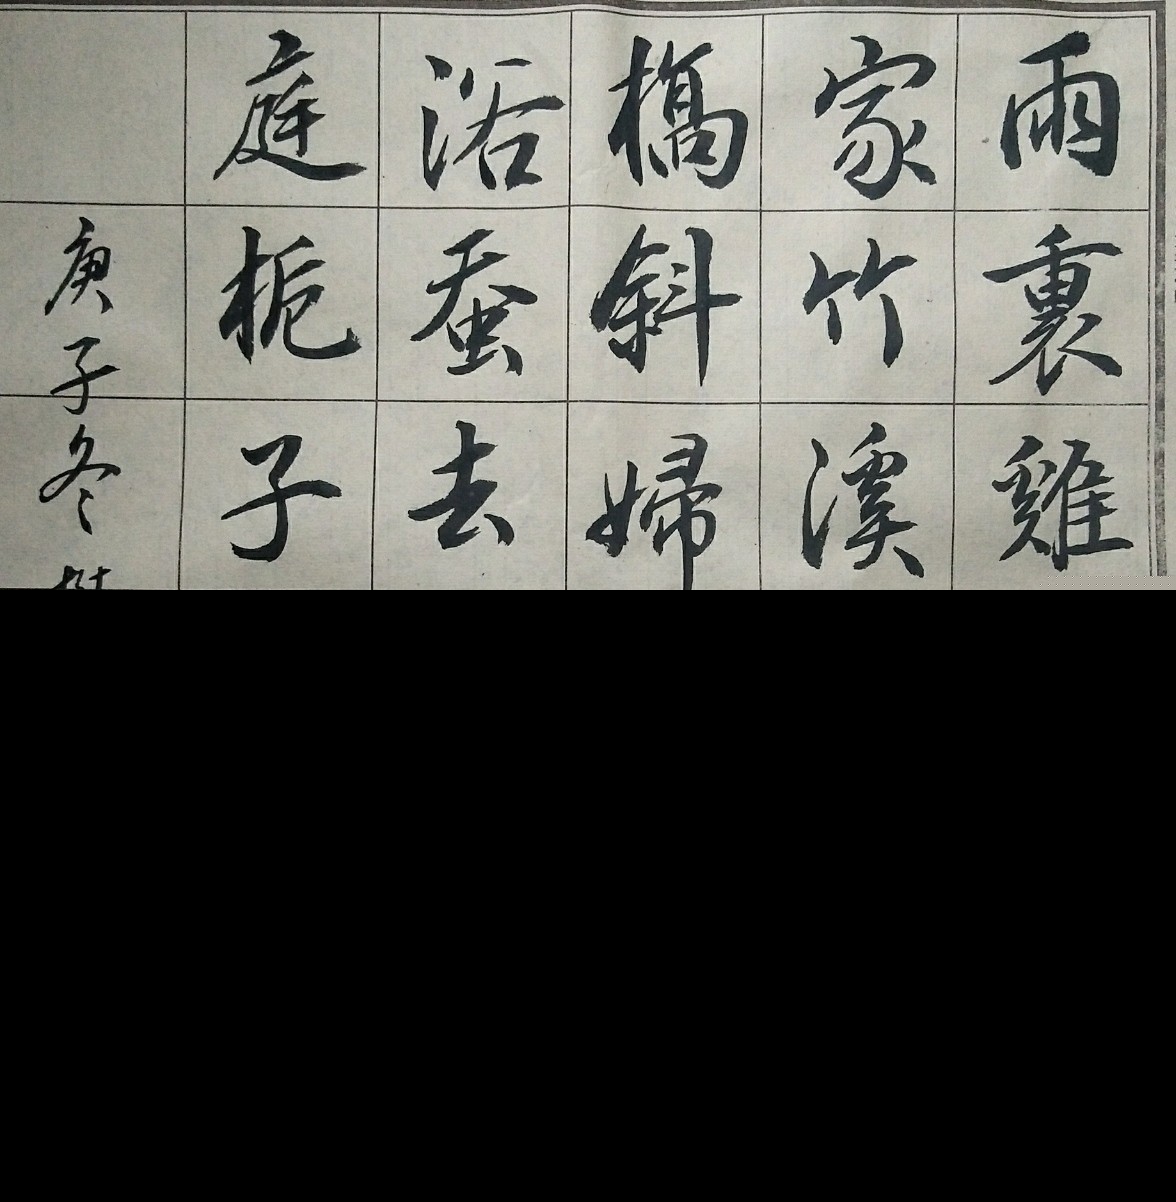 雨裏雞
家竹溪
橋斜婦
浴蚕去
庭栀子
庚子冬